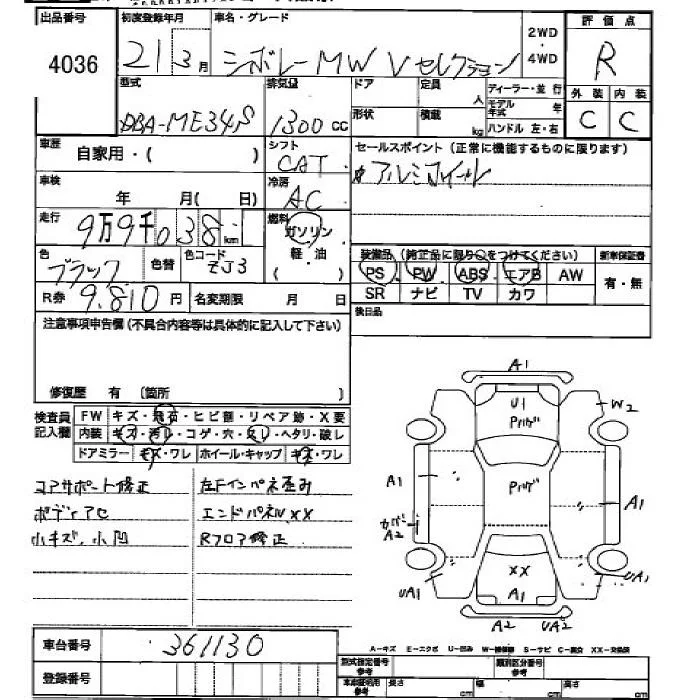 出品番号 初度登録年月 車名・グレード 2WD・4WD 評価点
4036 21 3月 シボレーMW Vセレクション R
型式 排気量 ドア 定員 人 ディーラー・並行 外装 内装
DBA-ME34S 1300cc 形状 積載 kg モデル年式 年 ハンドル 左・右 C C
車歴 自家用・( ) シフト CAT セールスポイント (正常に機能するものに限ります)
アルミホイール
車検 年 月( 日) 冷房 AC
走行 9万9千038km 燃料 ガソリン
軽・油
( )
色 ブラック 色替 色コード ZJ3
装備品 (純正品に限り○をつけてください) 新車保証書
PS PW ABS エアB AW 有・無
SR ナビ TV カワ
R券 9.810円 名変期限 月 日
後日品
注意事項申告欄(不具合内容等は具体的に記入して下さい)
修復歴 有 〔箇所 〕
検査員記入欄 FW キズ・飛石・ヒビ割・リペア跡・X要
内装 キズ・汚レ・コゲ・穴・スレ・ヘタリ・破レ
ドアミラー キズ・ワレ ホイール・キャップ キズ・ワレ
コアサポート修正 左Fインパネ歪み
ボディアセ エンドパネルXX
小キズ、小凹 Rフロア修正
A1
U1 W2
Pハゲ
A1 Pハゲ A1
カバー
A2
XX
UA1 A1 UA1
A2 UA2
車台番号 361130
登録番号
A-キズ E-エクボ U-凹み W-補修跡 S-サビ C-腐食 XX-交換済
型式指定番号 参考 類別区分番号 参考
車庫証明用 参考 長さ cm 幅 cm 高さ cm